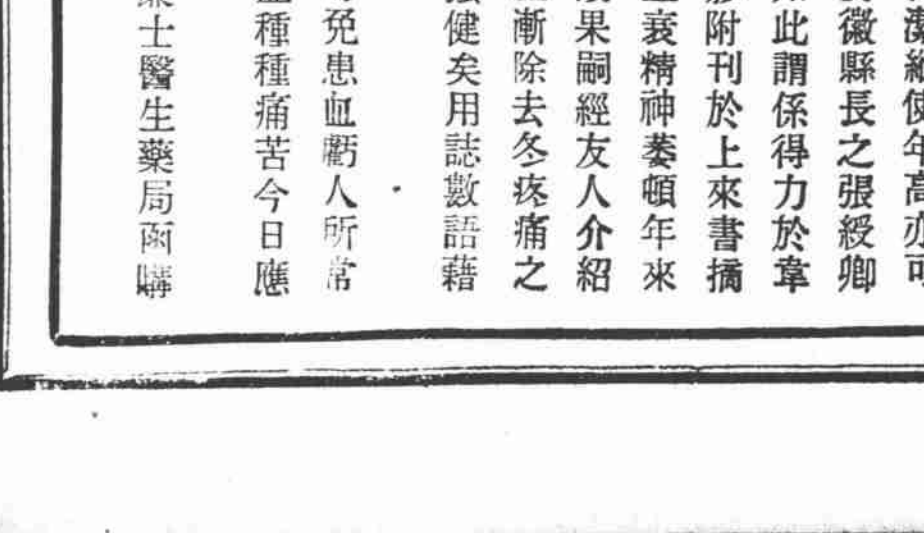 使年高亦可
徽縣長之張綬卿
此謂係得力於韋
附刊於上來書摘
衰精神萎頓年來
果嗣經友人介紹
漸除去冬疼痛之
健矣用誌數語藉
免患血虧人所常
種種痛苦今日應
士醫生藥局函購